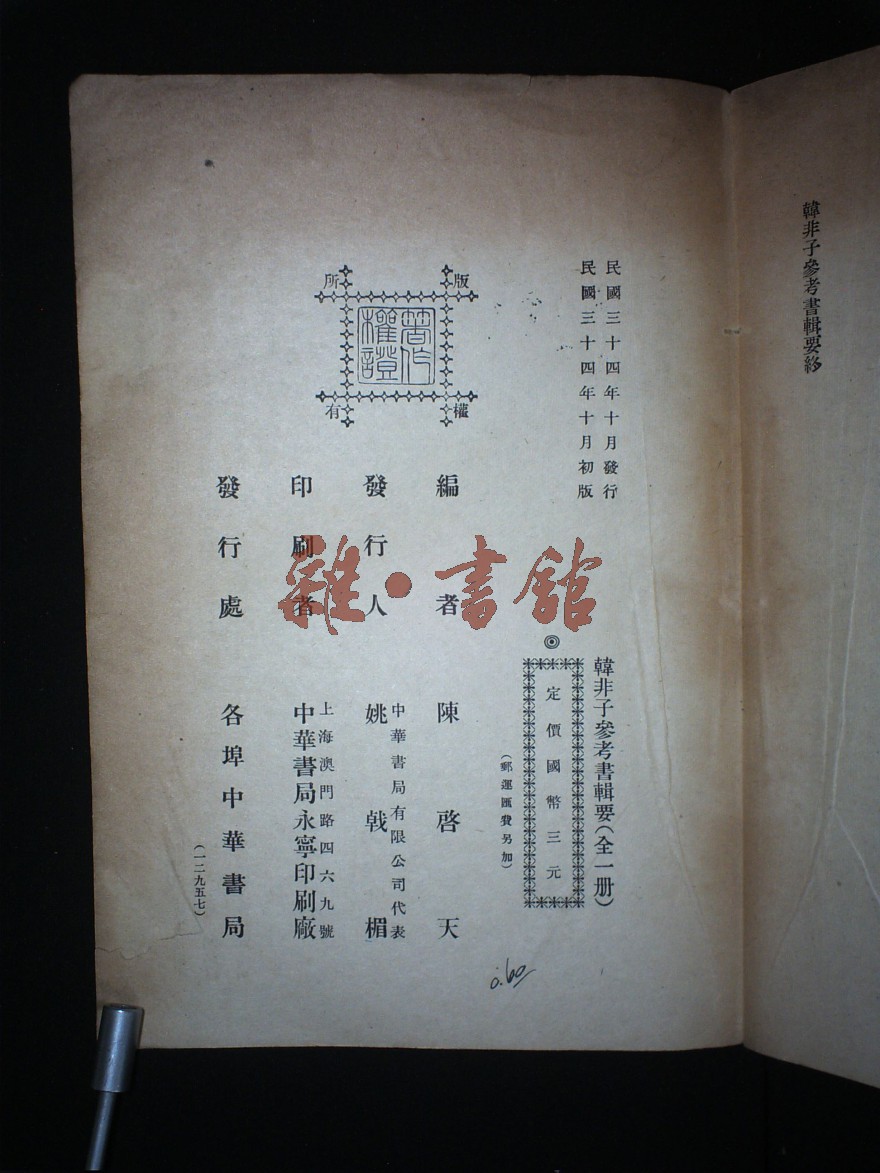 韓非子參考書輯要終
民國三十四年十月發行
民國三十四年十月初版
韓非子參考書輯要(全一册)
◎
定價國幣三元
(郵運匯費另加)
版權所有
著作權證
編者 陳啓天
發行人 中華書局有限公司代表
姚戟楣
印刷者 上海澳門路四六九號
中華書局永寧印刷廠
發行處 各埠中華書局
(一二九五七)
0.60
雜·書館